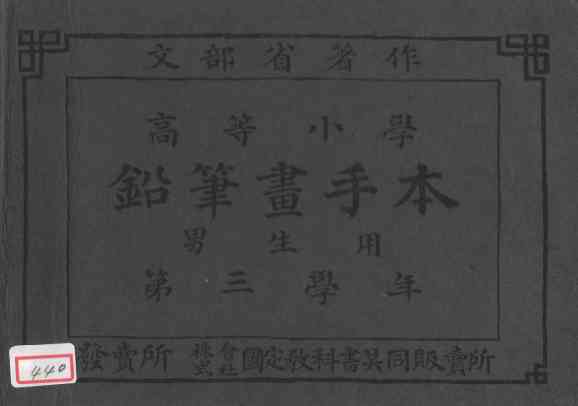 文部省著作
高等小學
鉛筆畫手本
男生用
第三學年
發賣所 株式會社國定教科書共同販賣所
440